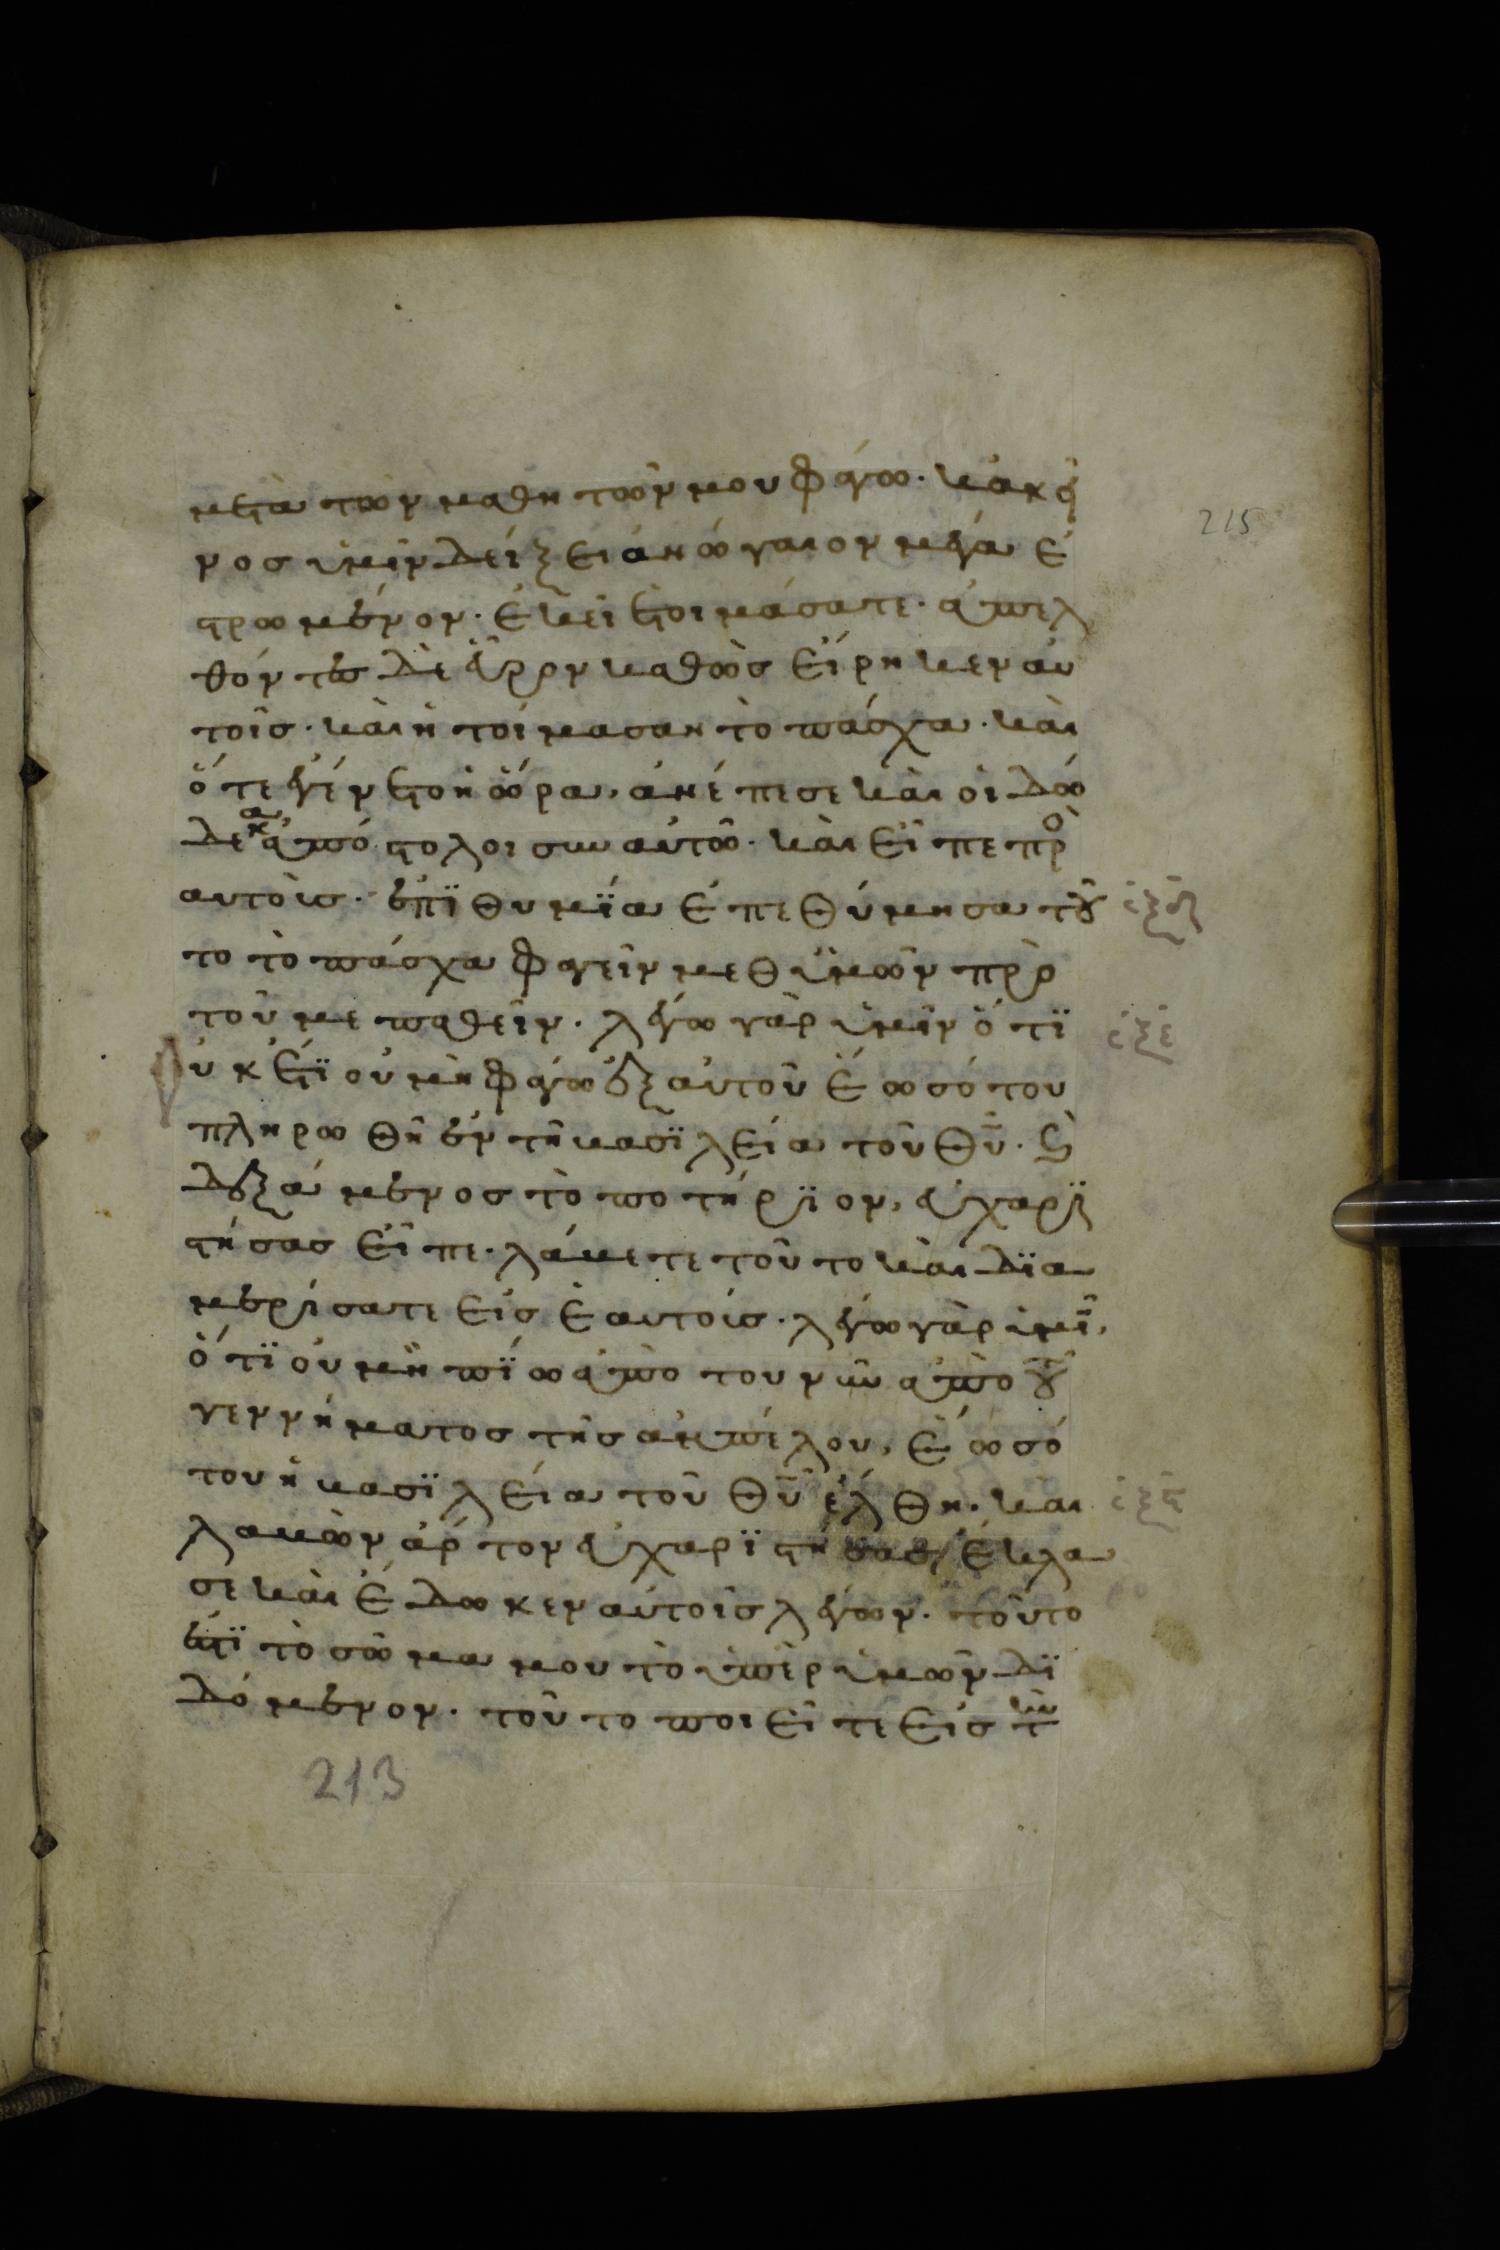 μετὰ τῶν μαθητῶν μου φάγω· κἀκεῖ
νος ὑμῖν δείξει ἀνώγαιον μέγα ἐ
στρωμένον· ἐκεῖ ἑτοιμάσατε· ἀπελ
θόντες δὲ εὗρον καθὼς εἴρηκεν αυ
τοῖς· καὶ ἡτοίμασαν τὸ πάσχα· καὶ
ὅτε ἐγένετο ἡ ὥρα, ἀνέπεσε καὶ οἱ δώ
δεκα ἀπόστολοι σὺν αὐτῶ· καὶ εἶπε πρὸ
αυτοὺς· ἐπϊθυμΐα ἐπεθύμησα τοῦ
το τὸ πάσχα φαγεῖν μεθ ὑμῶν πρὸ
τοῦ με παθεῖν· λέγω γὰρ ὑμῖν ὅτϊ
οὐκέτϊ οὐ μὴ φάγω ἐξ αὐτοῦ ἕως ὅτου
πληρωθῆ ἐν τῆ βασϊλεία τοῦ θ̅υ̅· ϗ
δεξάμενος τὸ ποτήρϊον, εὐχαρϊ
στήσας εἶπε· λάβετε τοῦτο καὶ δϊα
μερίσατε εἰς ἑαυτούς· λέγω γὰρ ὑμῖ,
ὅτϊ οὐ μὴ πΐω ἀπὸ του νῦν ἀπὸ τοῦ
γεννήματος τῆς ἀμπέλου, ἕως ὅ
του ἡ βασϊλεία τοῦ θ̅υ̅ ἔλθη· καὶ
λαβὼν ἄρτον εὐχαρϊστήσας, ἔκλα
σε καὶ ἔδωκεν αὐτοῖς λέγων· τοῦτο
ἐστϊ τὸ σῶμα μου τὸ ὑπὲρ ὑμῶν δϊ
δόμενον· τοῦτο ποιεῖτε εἰς τὴν
σξε
215
213